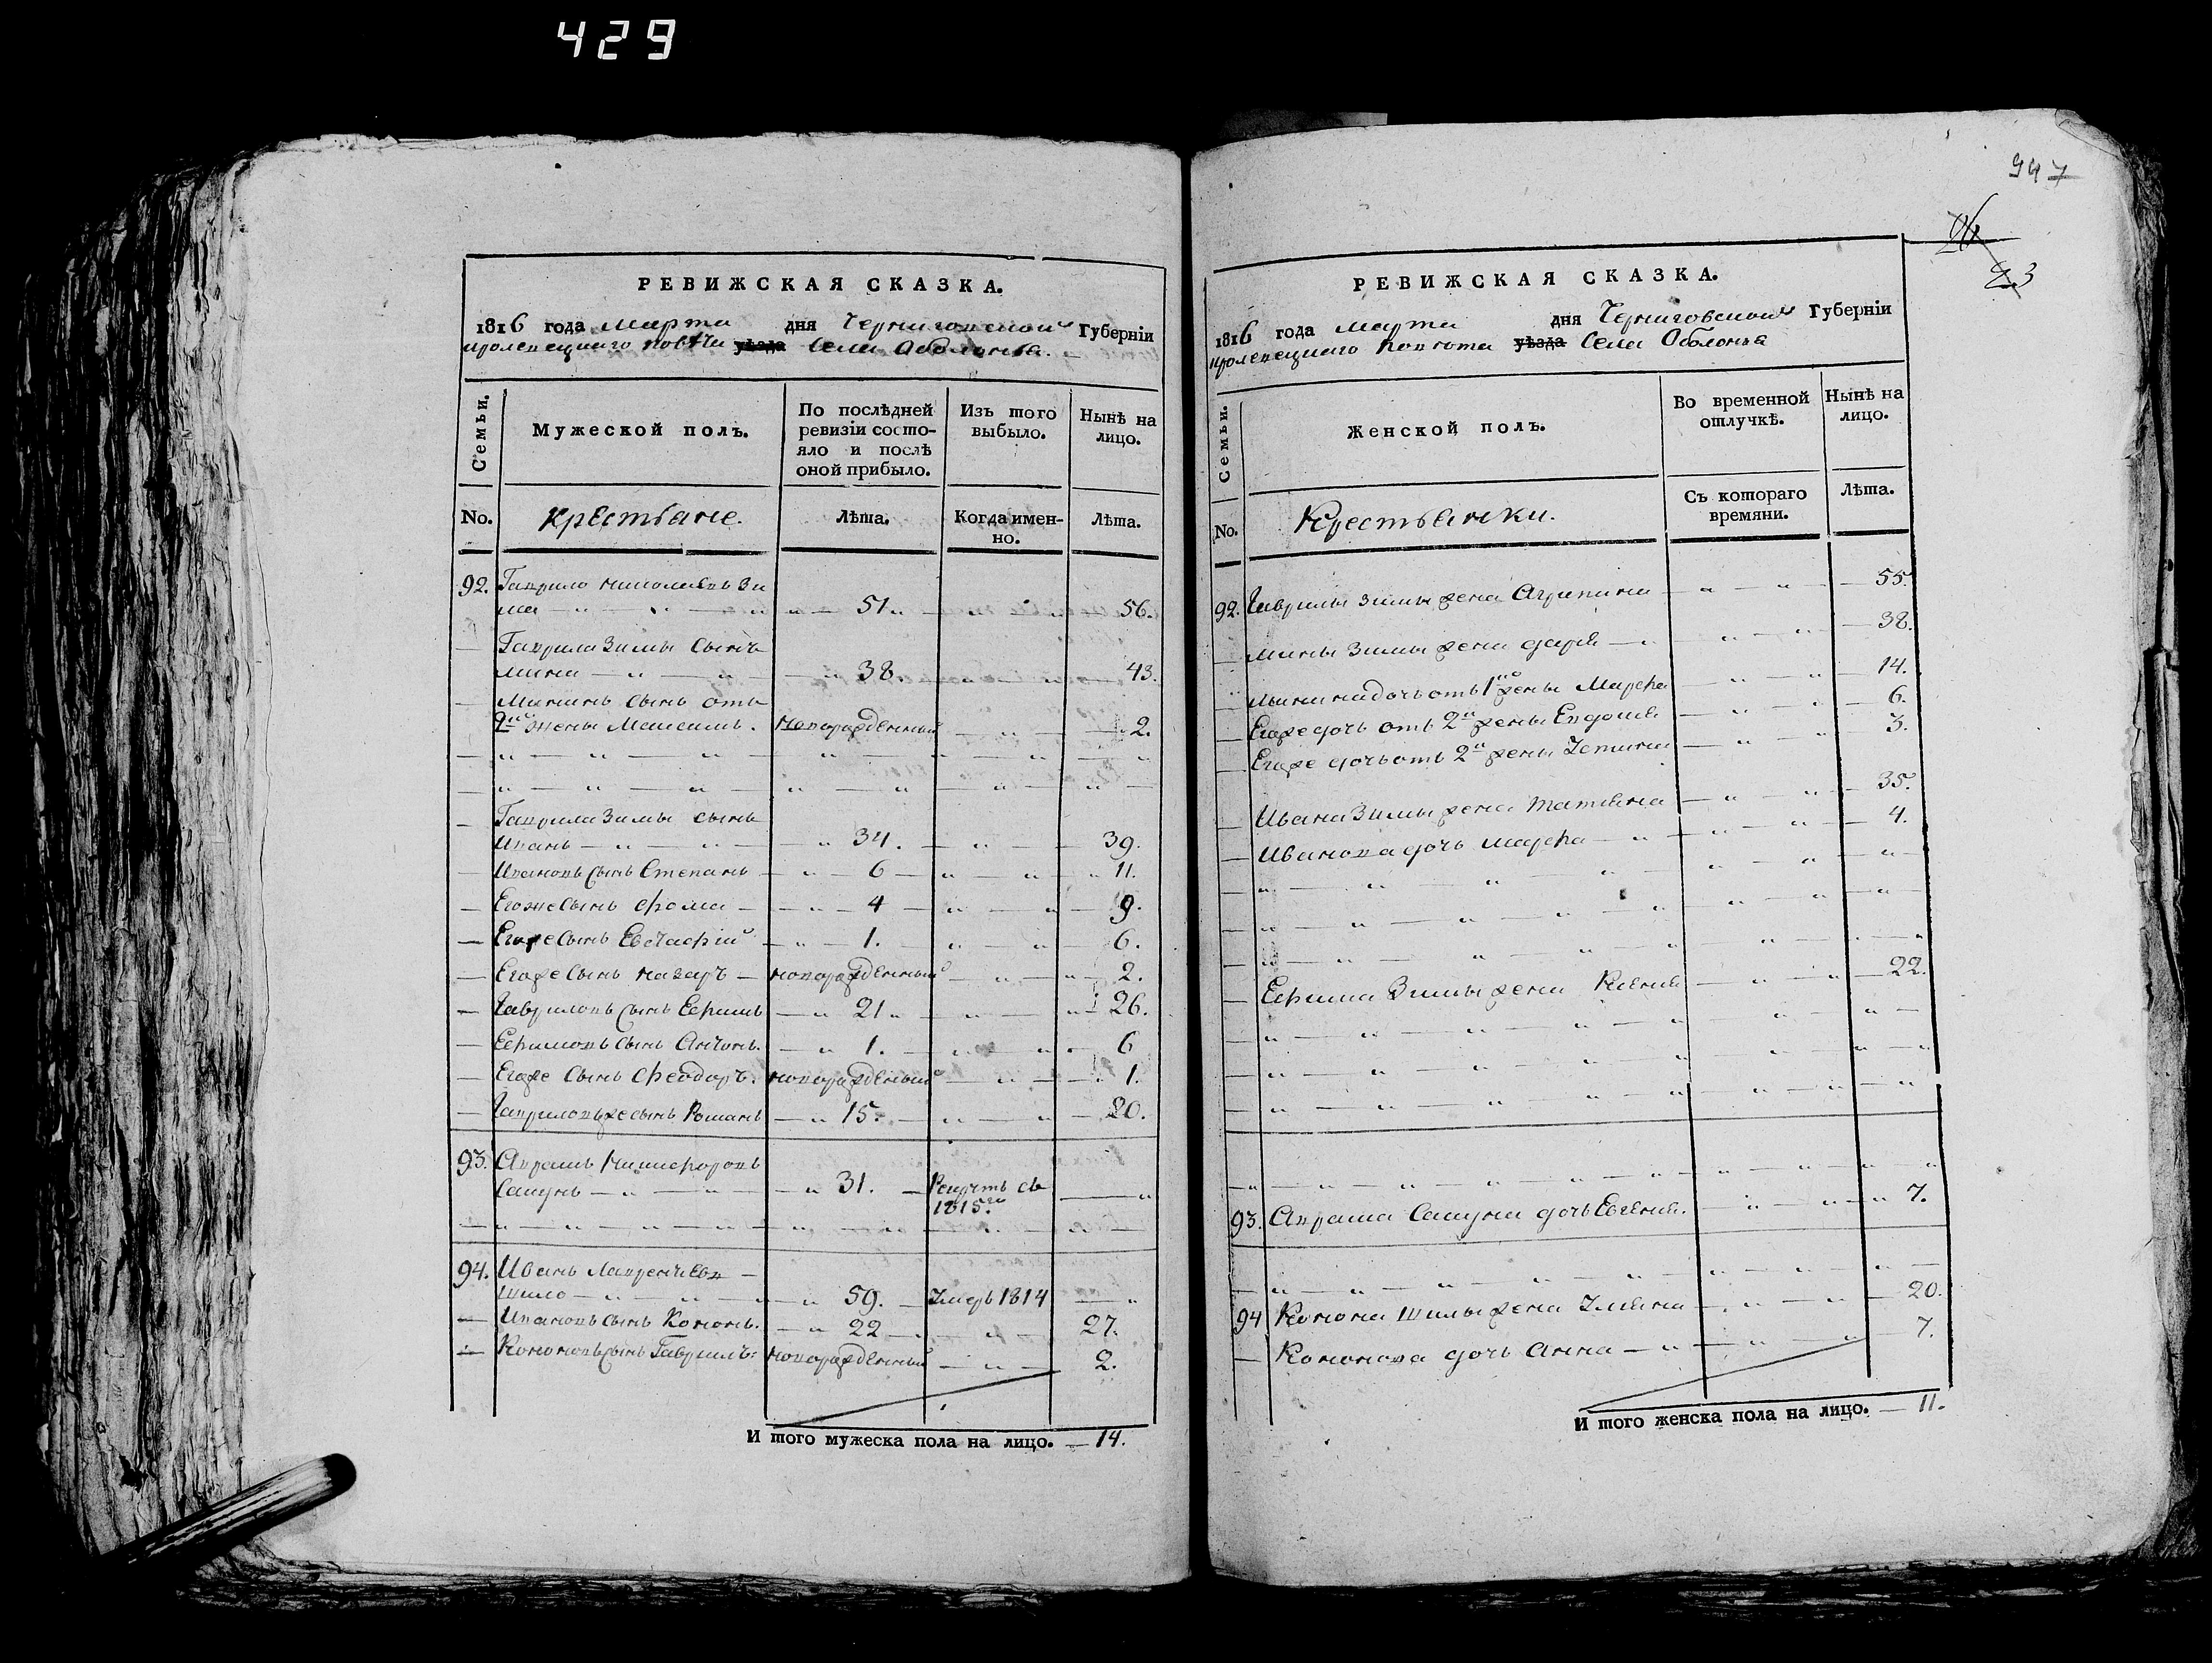 429
РЕВИЖСКАЯ СКАЗКА.
1816 года марта дня Черниговской Губерніи
кролевецкаго повѣта уѣзда Села Оболонья.
Семьи.
Мужеской полъ.
По послѣдней ревизіи состояло и послѣ оной прибыло.
Изъ того выбыло.
Нынѣ на лицо.
No.
Крестьяне.
Лѣта.
Когда именно.
Лѣта.
92. Гаврило николаевъ Зи
ма 51 56.
Гаврила Зимы Сынъ
мина 38. 43.
Мининъ сынъ отъ
2й жены Максимъ. новорожденный 2.
Гаврила Зимы сынъ
Иванъ 34. 39.
Ивановъ сынъ Степанъ 6 11.
Егоже Сынъ Фома 4 9.
Егоже Сынъ Евстафій 1. 6.
Егоже Сынъ назаръ новорожденный 2.
Гавриловъ сынъ Ефимъ 21 26.
Ефимовъ сынъ Антонъ. 1. 6
Егоже Сынъ Феодоръ. новорожденный 1.
Гавриловъ же сынъ Романъ 15. 20.
93. Аврамъ Никифоровъ
Сацунъ 31. Рекрутъ съ
1815го
94. Иванъ Лаврентиевъ
Шило 59. Умеръ 1814
Ивановъ сынъ Кононъ. 22 27.
Кононовъ сынъ Гаврилъ: новорожденный 2.
И того мужеска пола на лицо. 14.
947
26
23
РЕВИЖСКАЯ СКАЗКА.
1816 года марта дня Черниговской Губерніи
кролевецкаго Повѣта уѣзда Села Оболонья
Семьи.
Женской полъ.
Во временной отлучкѣ.
Нынѣ на лицо.
No.
Крестьянки.
Съ котораго времяни.
Лѣта.
92. Гаврилы Зимы жена Агрипина 55.
Мины Зимы жена дарія 38.
Минина дочь отъ 1й жены Марфа 14.
Егоже дочь отъ 2й жены Евдокія 6.
Егоже дочь отъ 2й жены Устина 3.
Ивана Зимы жена татіяна 35.
Иванова дочь марфа 4.
Ефима Зимы жена Ксенія 22.
93. Аврама Сацуна дочь Евгенія. 7.
94 Конона Шилы жена Уліяна 20.
Кононова дочь Анна 7.
И того женска пола на лицо. 11.